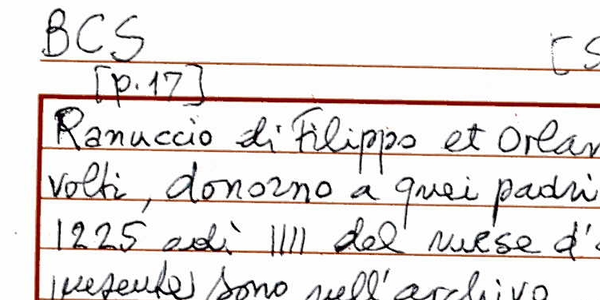 BCS [S
[p. 17]
Ranuccio di Filippo et Orlan
volti, donorno a quei padri
1225 adì IIII del mese d'a
presente) sono nell'archivo